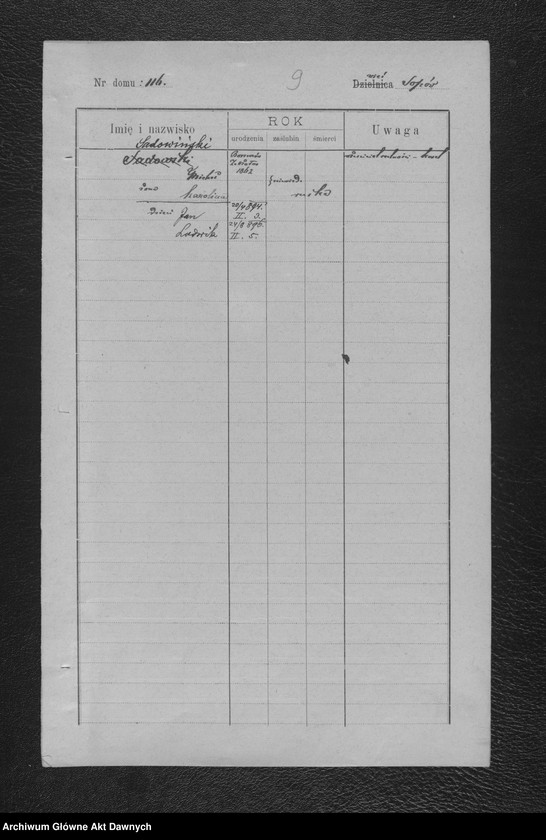 Nr domu: 116.
9
wieś
Dzielnica Sopów
Imię i nazwisko
ROK
urodzenia
zaślubin
śmierci
Uwaga
Sadowiński
Sadowski
1862
żona Karolina
Dzieci Jan
20/4 894.
II. 3.
Ludwik
24/8 896.
II. 5.
Archiwum Główne Akt Dawnych